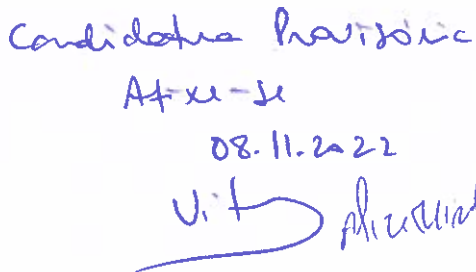 Candidatura Provisória
Afixe-se
08.11.2022